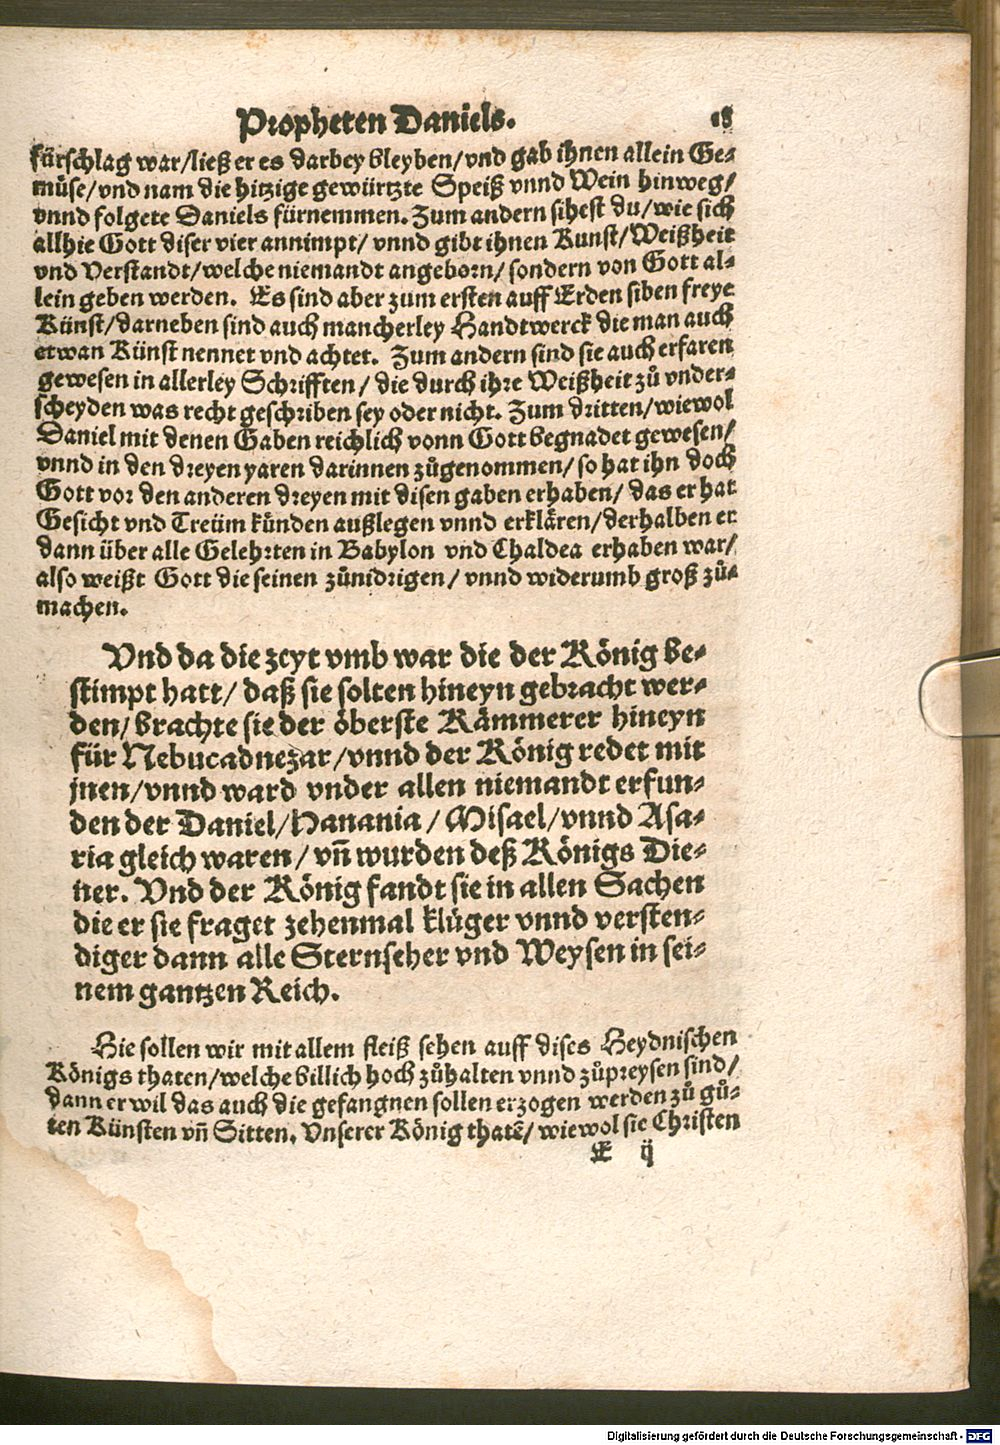 Propheten Daniels. 18
fürschlag war/ließ er es darbey bleyben/vnd gab ihnen allein Ge⸗
müse/vnd nam die hitzige gewürtzte Speiß vnnd Wein hinweg/
vnnd folgete Daniels fürnemmen. Zum andern sihest du/wie sich
allhie Gott diser vier annimpt/ vnnd gibt ihnen Kunst/Weißheit
vnd Verstandt/welche niemandt angeborn/ sondern von Gott al⸗
lein geben werden. Es sind aber zum ersten auff Erden siben freye
Künst/darneben sind auch mancherley Handtwerck die man auch
etwan Künst nennet vnd achtet. Zum andern sind sie auch erfaren
gewesen in allerley Schrifften/ die durch ihre Weißheit zů vnder⸗
scheyden was recht geschriben sey oder nicht. Zum dritten/wiewol
Daniel mit denen Gaben reichlich vonn Gott begnadet gewesen/
vnnd in den dreyen yaren darinnen zůgenommen/ so hat ihn doch
Gott vor den anderen dreyen mit disen gaben erhaben/ das er hat
Gesicht vnd Treüm künden außlegen vnnd erklären/derhalben er
dann über alle Gelehrten in Babylon vnd Chaldea erhaben war/
also weißt Gott die seinen zůnidrigen/ vnnd widerumb groß zů⸗
machen.
Vnd da die zeyt vmb war die der König be⸗
stimpt hatt/ daß sie solten hineyn gebracht wer⸗
den/ brachte sie der öberste Kämmerer hineyn
für Nebucadnezar/vnnd der König redet mit
jnen/vnnd ward vnder allen niemandt erfun⸗
den der Daniel/Hanania/ Misael/vnnd Asa⸗
ria gleich waren/ vñ wurden deß Königs Die⸗
ner. Vnd der König fandt sie in allen Sachen
die er sie fraget zehenmal klüger vnnd versten⸗
diger dann alle Sternseher vnd Weysen in sei⸗
nem gantzen Reich.
Hie sollen wir mit allem fleiß sehen auff dises Heydnischen
Königs thaten/welche billich hoch zůhalten vnnd zůpreysen sind/
dann er wil das auch die gefangnen sollen erzogen werden zů gů⸗
ten Künsten vñ Sitten. Vnserer König thatẽ/ wiewol sie Christen
E ij
Digitalisierung gefördert durch die Deutsche Forschungsgemeinschaft - DFG